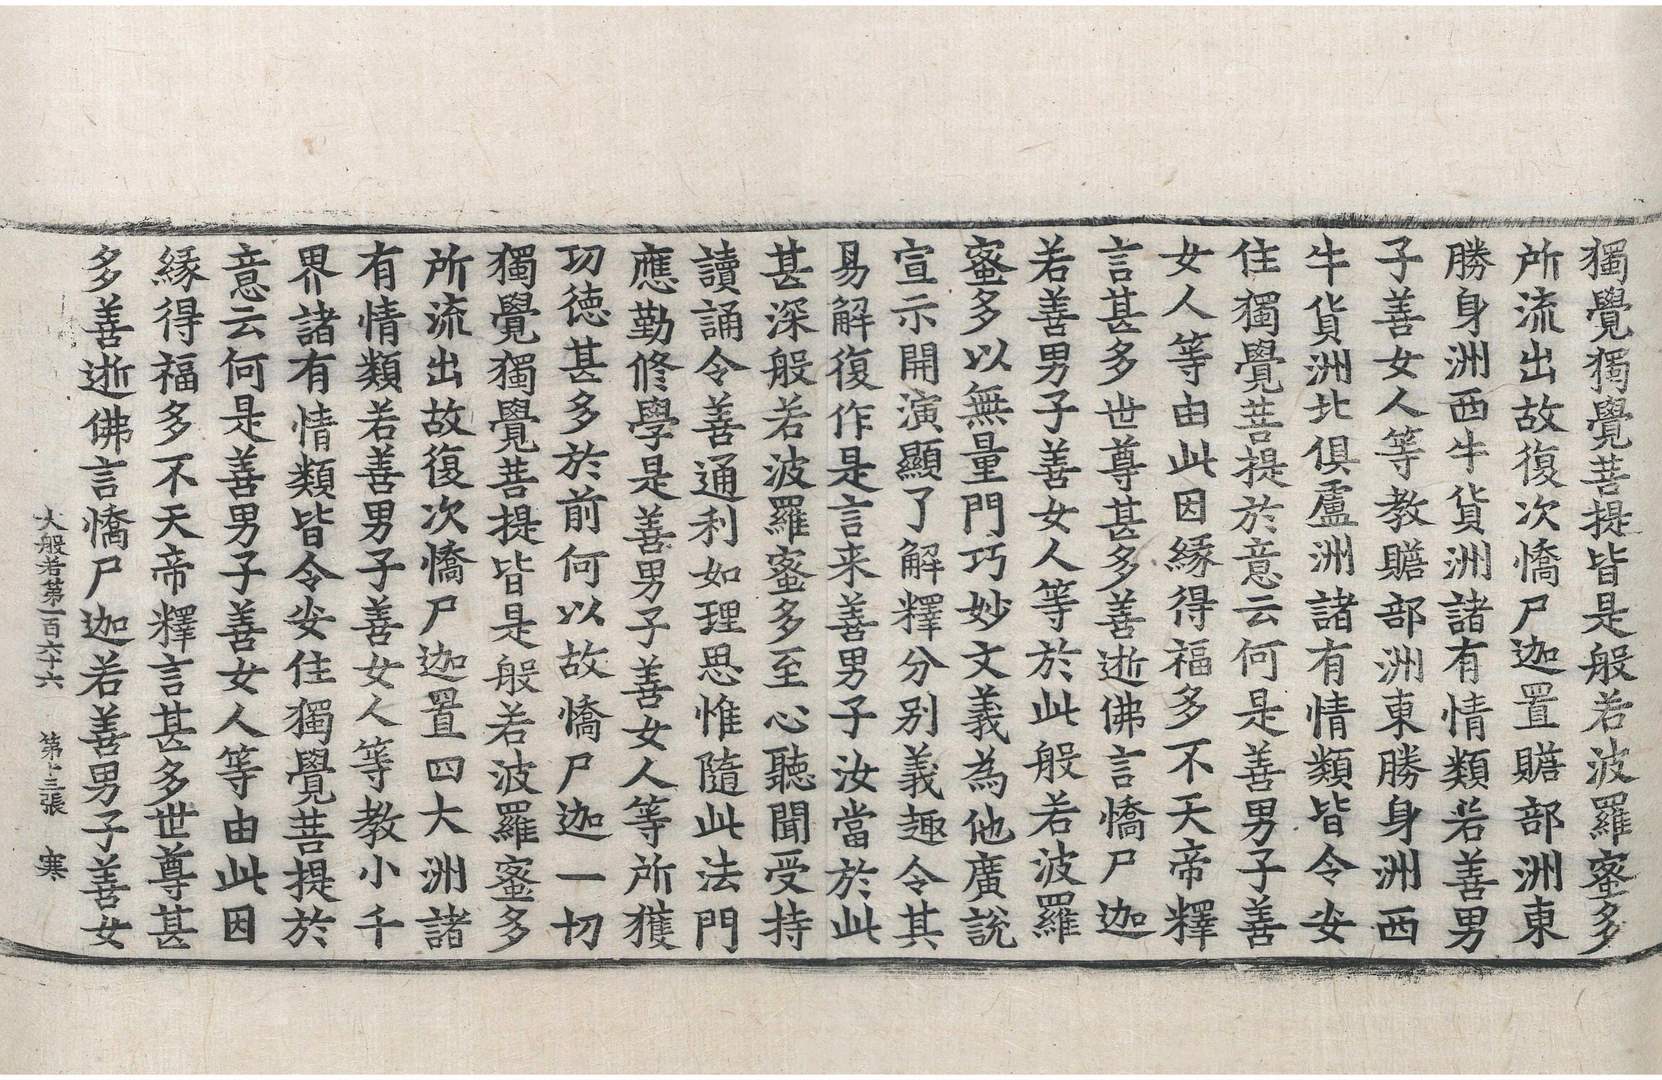 獨覺獨覺菩提皆是般若波羅蜜多
所流出故復次憍尸迦置贍部洲東
勝身洲西牛貨洲諸有情類若善男
子善女人等教贍部洲東勝身洲西
牛貨洲北俱盧洲諸有情類皆令安
住獨覺菩提於意云何是善男子善
女人等由此因緣得福多不天帝釋
言甚多世尊甚多善逝佛言憍尸迦
若善男子善女人等於此般若波羅
蜜多以無量門巧妙文義為他廣說
宣示開演顯了解釋分別義趣令其
易解復作是言来善男子汝當於此
甚深般若波羅蜜多至心聽聞受持
讀誦令善通利如理思惟隨此法門
應勤修學是善男子善女人等所獲
功德甚多於前何以故憍尸迦一切
獨覺獨覺菩提皆是般若波羅蜜多
所流出故復次憍尸迦置四大洲諸
有情類若善男子善女人等教小千
界諸有情類皆令安住獨覺菩提於
意云何是善男子善女人等由此因
緣得福多不天帝釋言甚多世尊甚
多善逝佛言憍尸迦若善男子善女
大般若第一百六十六 第十三張 寒